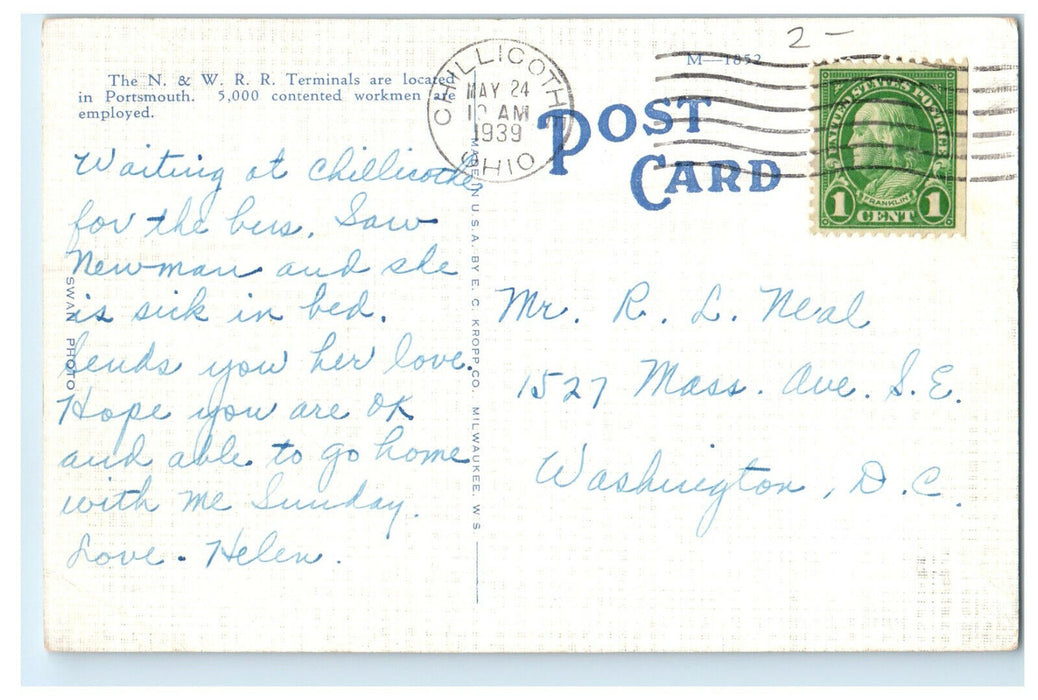 2-
M-1852
The N. & W. R. R. Terminals are located
in Portsmouth. 5,000 contented workmen are
employed.
CHILLICOTHE
MAY 24
AM
1939
OHIO
POST
CARD
UNITED STATES POSTAGE
FRANKLIN
1 CENT 1
Waiting at Chillicothe
for the bus. Saw
Newman and she
is sick in bed.
Sends you her love.
Hope you are OK
and able to go home
with me Sunday.
Love. Helen.
SWAN PHOTO
MADE IN U.S.A. BY E. C. KROPP CO. MILWAUKEE. WS.
Mr. R. L. Neal
1527 Mass. Ave. S.E.
Washington, D.C.